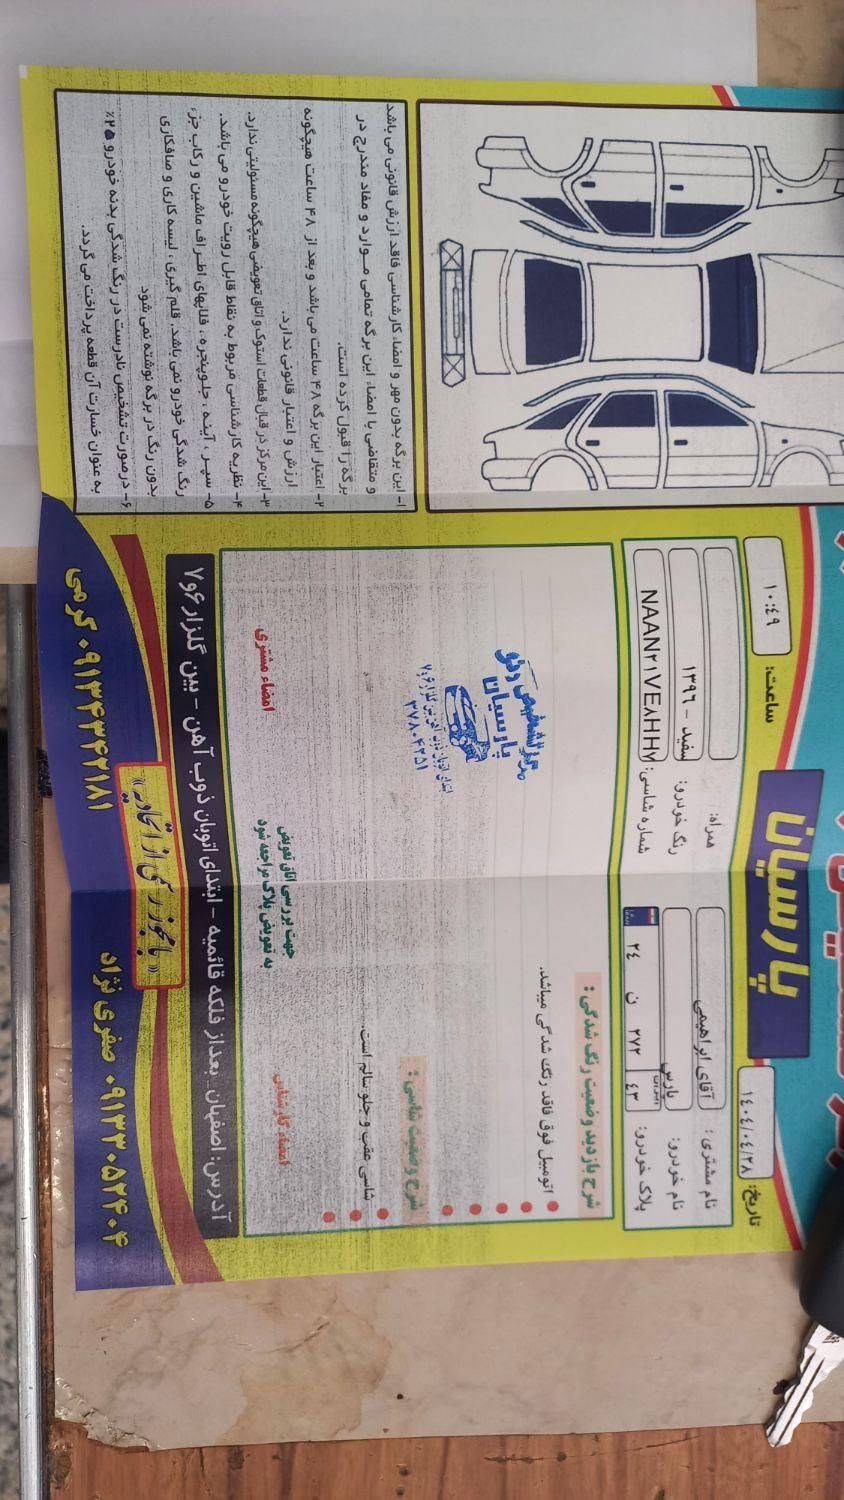 پارسیان
تاریخ: ۱۴۰۴/۰۴/۲۸
ساعت: ۱۰:۴۹
نام مشتری: آقای ابراهیمی
همراه:
نام خودرو: پارس
رنگ خودرو: سفید - ۱۳۹۶
پلاک خودرو: ۲۴ ن ۲۷۲ ۴۳
شماره شاسی: NAAN۲۱VE۸HH۷
شرح بازدید وضعیت رنگ شدگی:
اتومبیل فوق فاقد رنگ شدگی میباشد.
شرح وضعیت شاسی:
شاسی عقب و جلو سالم است.
مرکز تشخیص رنگ
پارسیان
۳۷۸۰۴۲۵۱
امضاء کارشناس
جهت بررسی اتاق تعویض
به تعویض پلاک مراجعه شود
امضاء مشتری
آدرس: اصفهان_ بعداز فلکه قائمیه - ابتدای اتوبان ذوب آهن - بین گلزار ۶و۷
«بامجوز رسمی از اتحادیه»
۰۹۱۳۳۰۵۲۴۰۴ صفری نژاد
۰۹۱۳۴۳۴۲۱۸۱ کرمی
۱- این برگه بدون مهر و امضاء کارشناسی فاقد ارزش قانونی می باشد
و متقاضی با امضاء این برگه تمامی موارد و مفاد مندرج در
برگه را قبول کرده است.
۲- اعتبار این برگه ۴۸ ساعت می باشد و بعد از ۴۸ ساعت هیچگونه
ارزش و اعتبار قانونی ندارد.
۳- این مرکز در قبال قطعات استوک و اتاق تعویضی هیچگونه مسئولیتی ندارد.
۴- نظریه کارشناسی مربوط به نقاط قابل رویت خودرو می باشد.
۵- سپر ، آینه ، جلوپنجره ، قابهای اطراف ماشین و رکاب جزء
رنگ شدگی خودرو نمی باشد. قلم گیری ، لیسه کاری و صافکاری
بدون رنگ در برگه نوشته نمی شود
۶- درصورت تشخیص نادرست در رنگ شدگی بدنه خودرو ۲۵٪
به عنوان خسارت آن قطعه پرداخت می گردد.